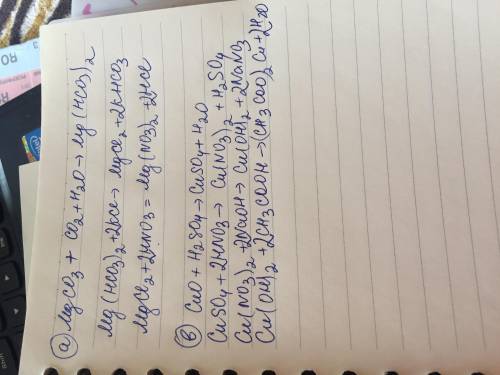 а) MgCO3 + CO2 + H2O → Mg(HCO3)2
Mg(HCO3)2 + 2KCl → MgCl2 + 2KHCO3
MgCl2 + 2HNO3 = Mg(NO3)2 + 2HCl
в) CuO + H2SO4 → CuSO4 + H2O
CuSO4 + 2HNO3 → Cu(NO3)2 + H2SO4
Cu(NO3)2 + 2NaOH → Cu(OH)2 + 2NaNO3
Cu(OH)2 + 2CH3COOH → (CH3COO)2Cu + 2H2O
intel
RO